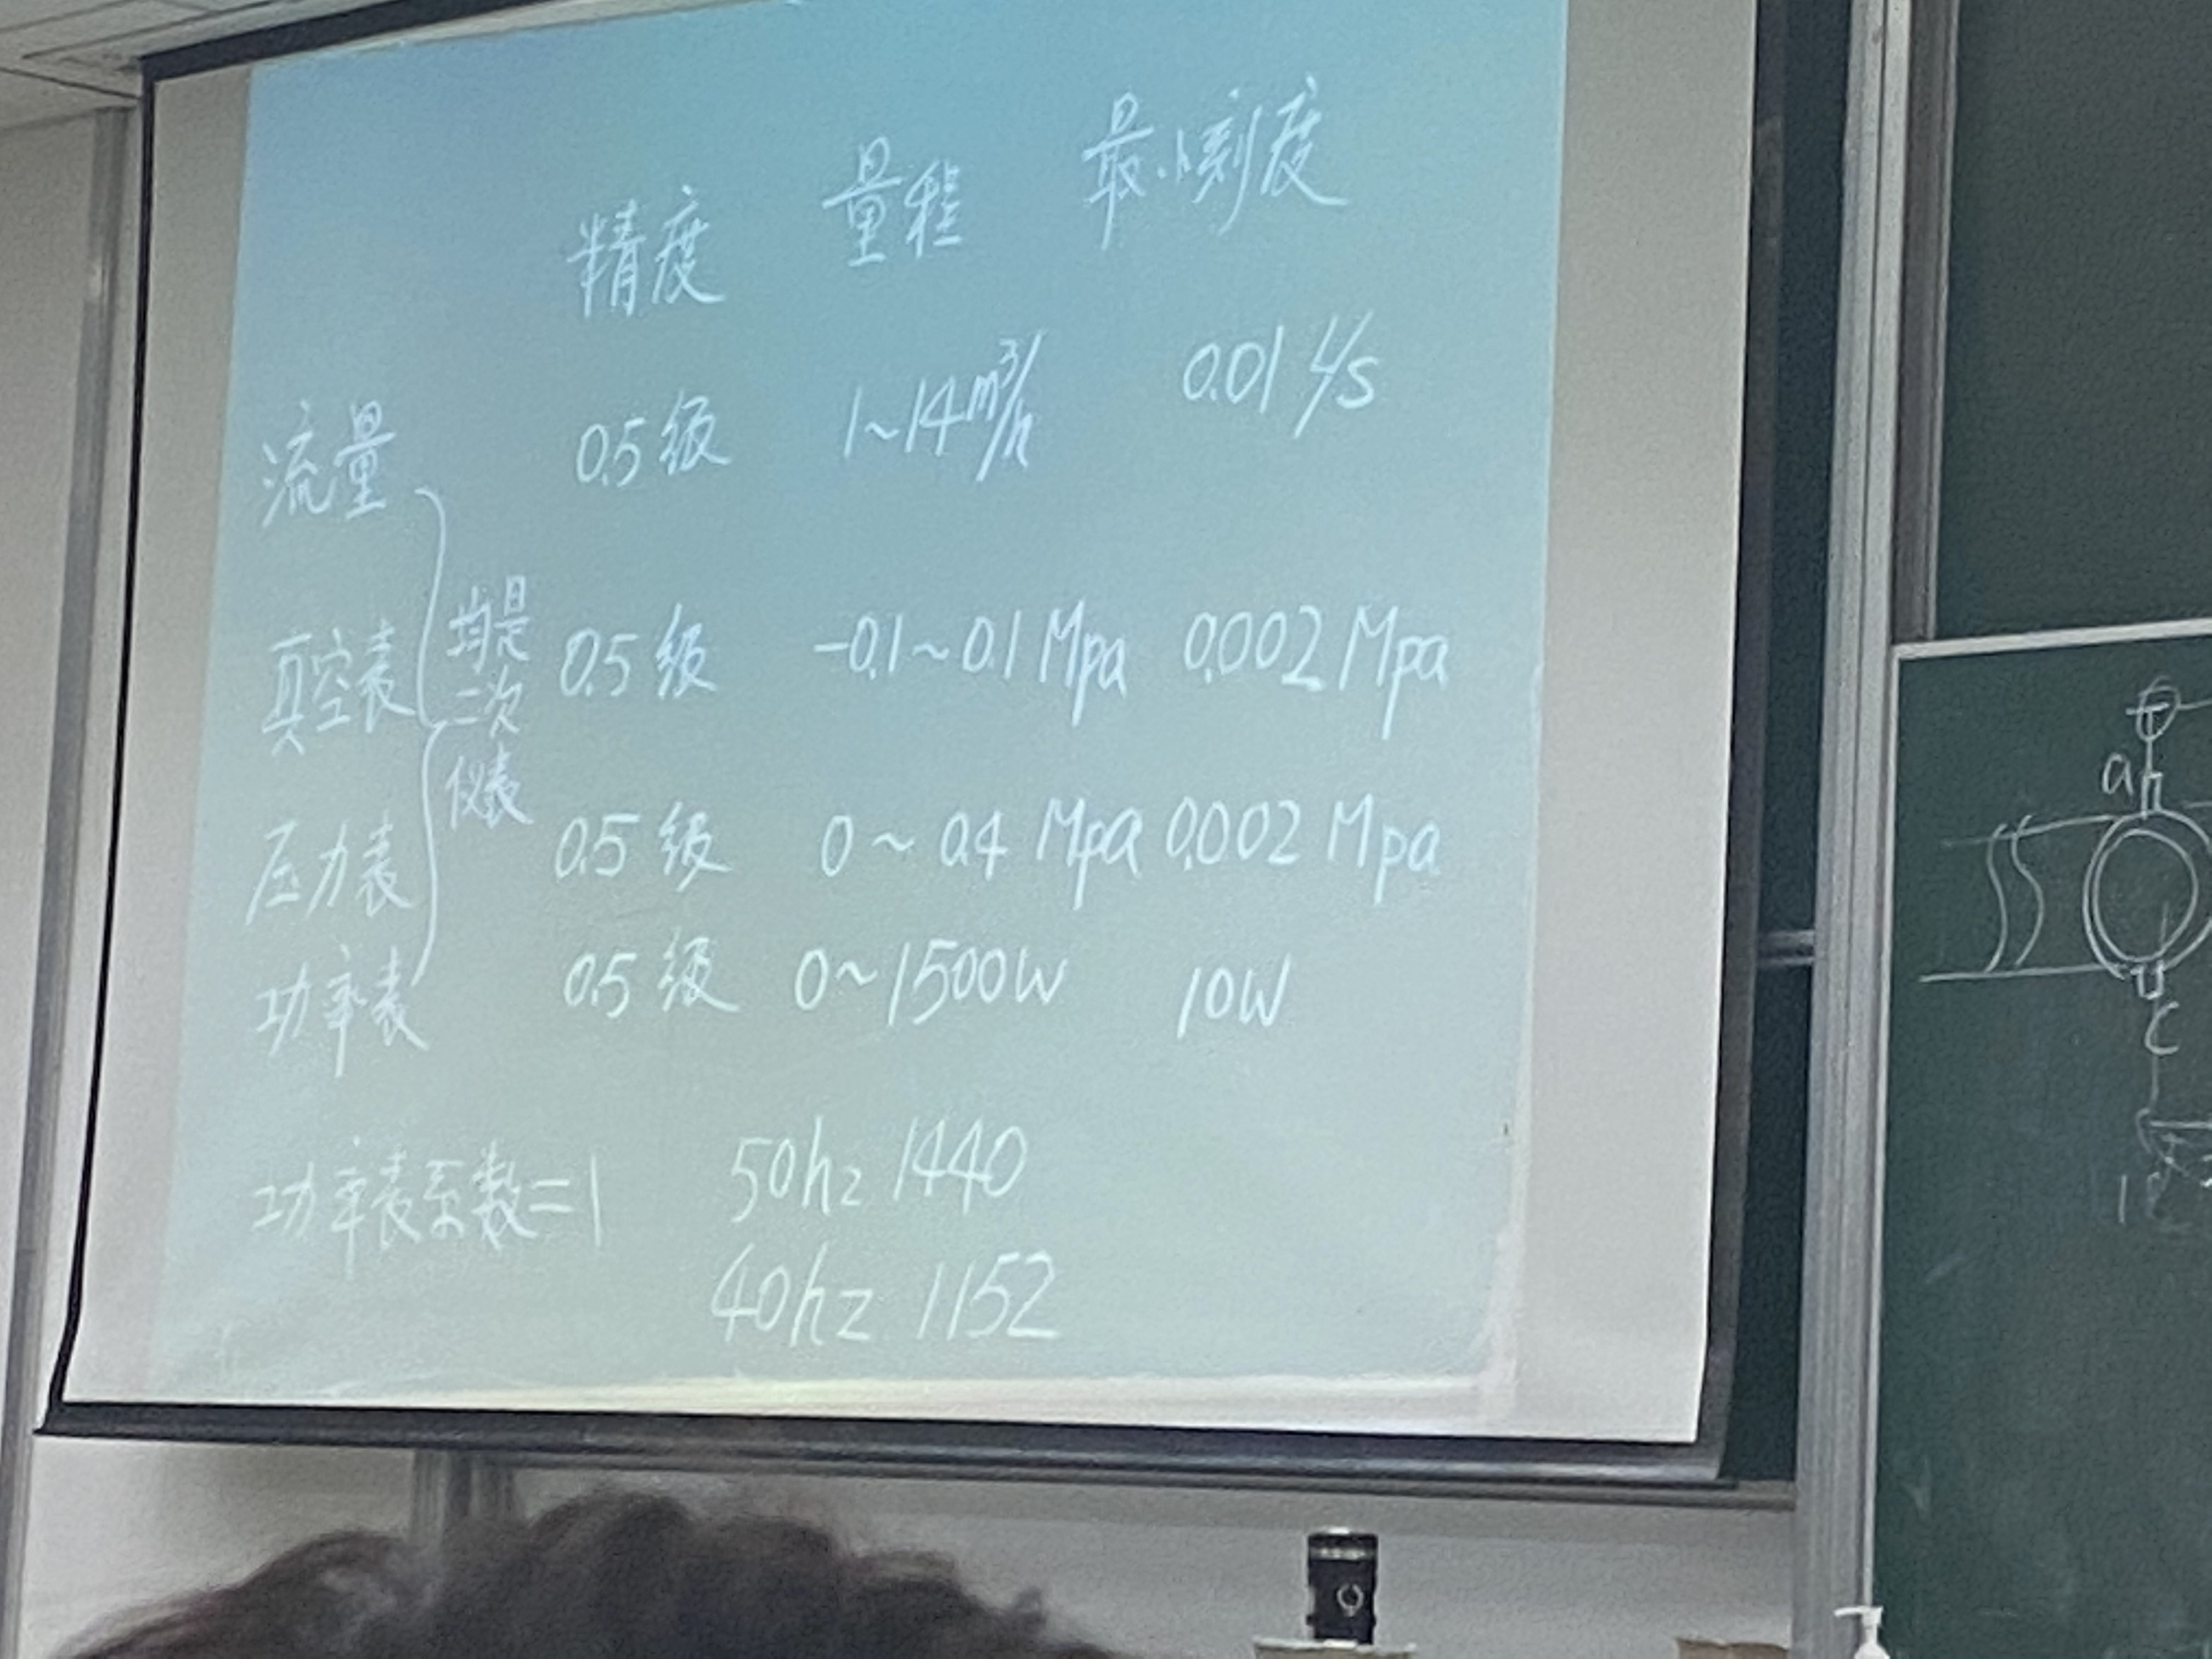 精度 量程 最小刻度
流量 0.5级 1~14m³/h 0.01 L/s
真空表 0.5级 -0.1~0.1 Mpa 0.002 Mpa
均是
二次
仪表
压力表 0.5级 0~0.4 Mpa 0.002 Mpa
功率表 0.5级 0~1500W 10W
功率表系数=1 50hz 1440
40hz 1152
a
c